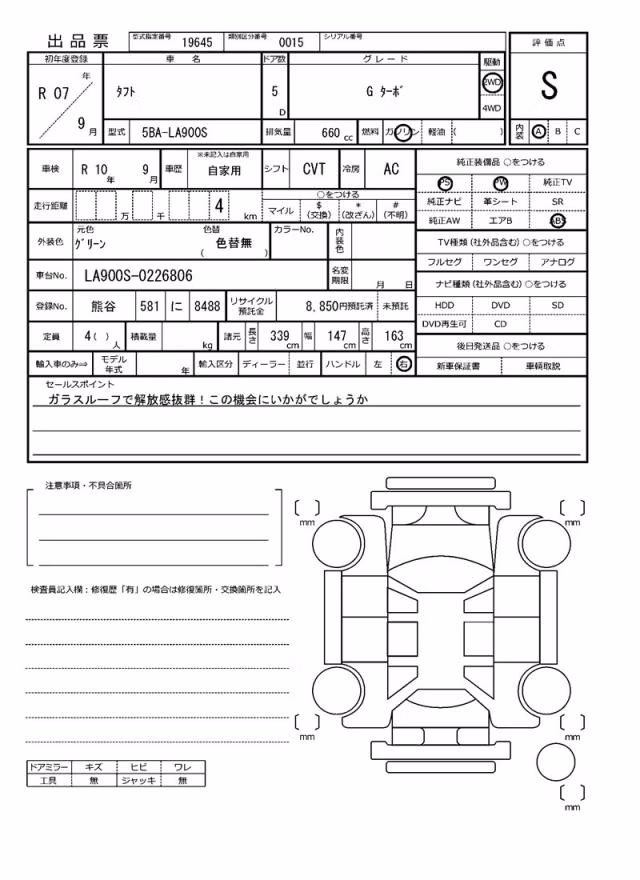 出品票 型式指定番号 19645 類別区分番号 0015 シリアル番号
評価点
S
初年度登録 車名 ドア数 グレード 駆動
R 07 年 9 月 タフト 5 D G ターボ 2WD 4WD
型式 5BA-LA900S 排気量 660 cc 燃料 ガソリン 軽油 ( )
内装 A B C
車検 R 10 年 9 月 車歴 ※未記入は自家用 自家用 シフト CVT 冷房 AC
走行距離 万 千 4 km
○をつける
マイル $(交換) *(改ざん) #(不明)
外装色 元色 グリーン 色替 色替無 ( ) カラーNo. 内装色
車台No. LA900S-0226806 名変期限 月 日
登録No. 熊谷 581 に 8488 リサイクル預託金 8,850円預託済 未預託
定員 4( ) 人 積載量 kg 諸元 長さ 339 cm 幅 147 cm 高さ 163 cm
輸入車のみ⇒ モデル年式 年 輸入区分 ディーラー 並行 ハンドル 左 右
純正装備品 ○をつける
PS PW 純正TV
純正ナビ 革シート SR
純正AW エアB ABS
TV種類 (社外品含む) ○をつける
フルセグ ワンセグ アナログ
ナビ種類 (社外品含む) ○をつける
HDD DVD SD
DVD再生可 CD
後日発送品 ○をつける
新車保証書 車輌取説
セールスポイント
ガラスルーフで解放感抜群！この機会にいかがでしょうか
注意事項・不具合箇所
検査員記入欄：修復歴「有」の場合は修復箇所・交換箇所を記入
ドアミラー キズ ヒビ ワレ
工具 無 ジャッキ 無
mm mm
mm mm
mm